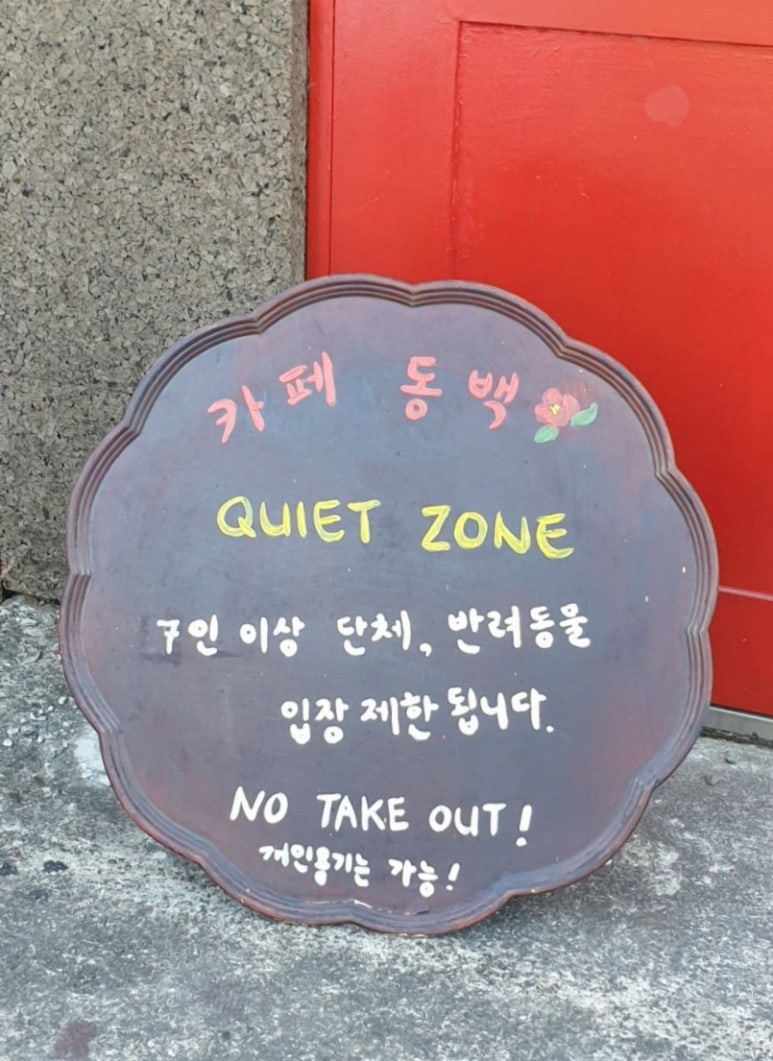 카페 동백
QUIET ZONE
7인 이상 단체, 반려동물
입장 제한 됩니다.
NO TAKE OUT!
개인용기는 가능!